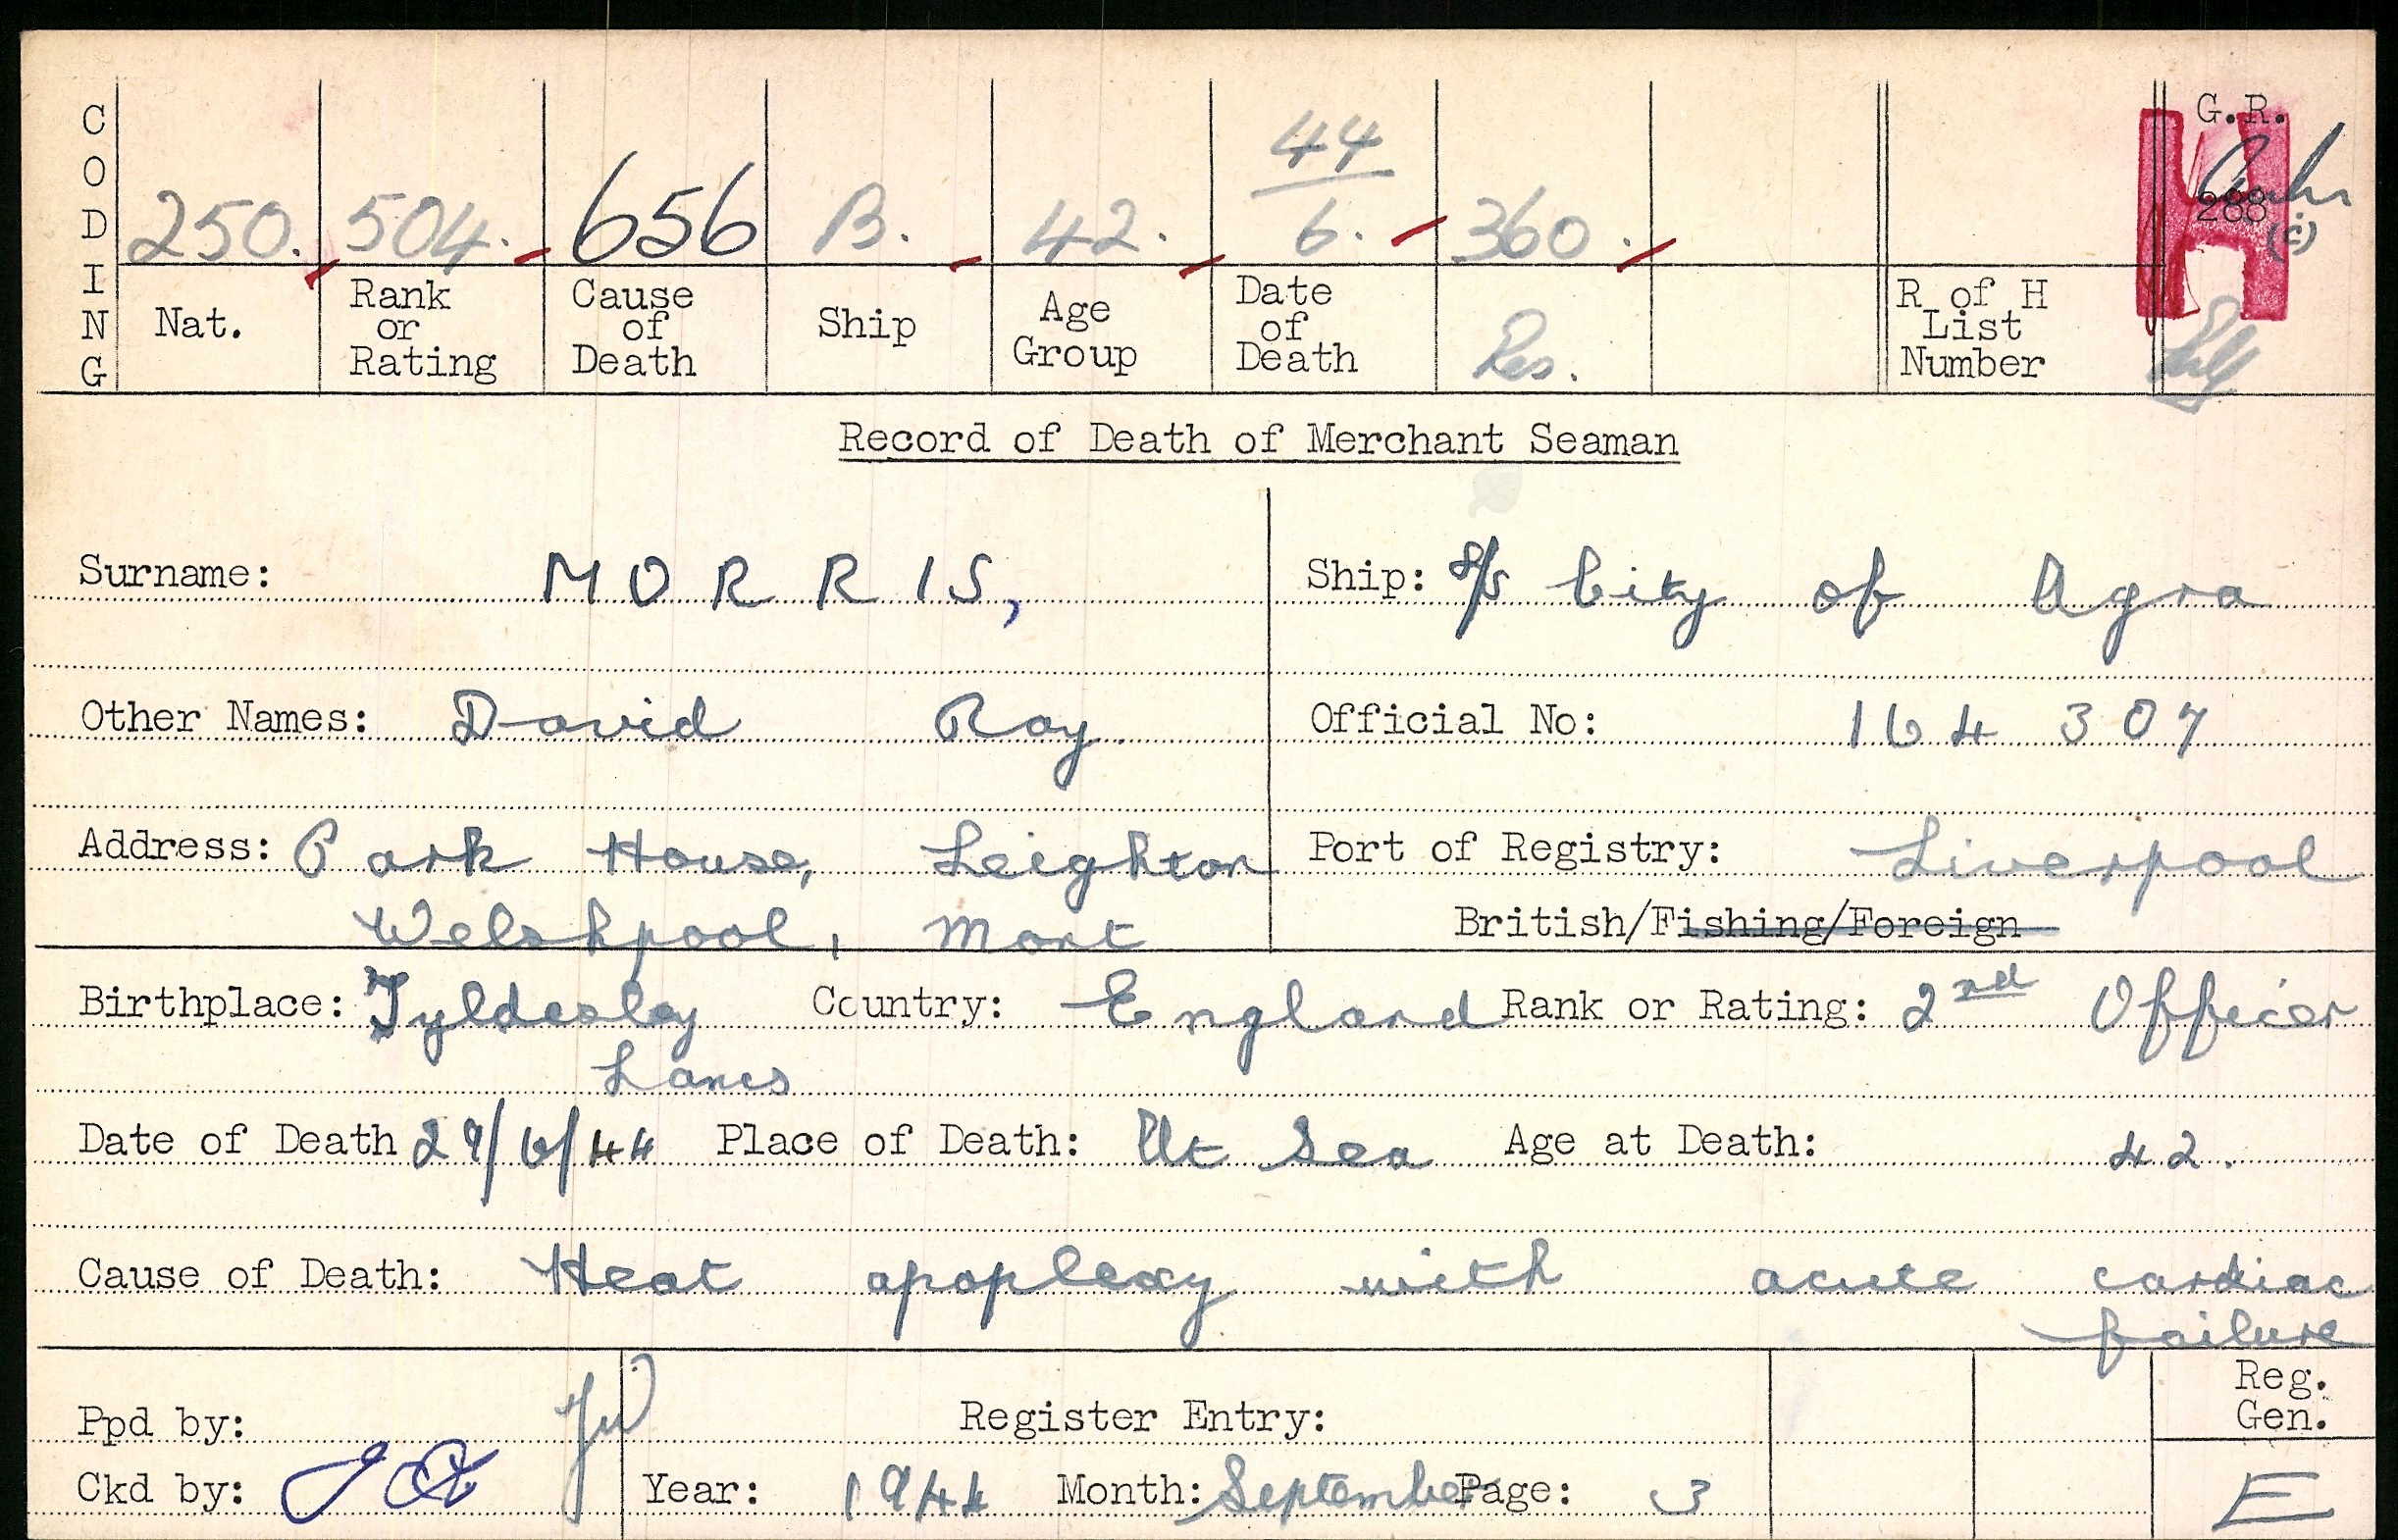 CODING
44
250. 504. 656 B. 42. 6. 360.
G.R.
288
(c)
H
Nat. Rank or Rating Cause of Death Ship Age Group Date of Death Res. R of H List Number
Record of Death of Merchant Seaman
Surname: MORRIS, Ship: S/S City of Agra
Other Names: David Roy Official No: 164 307
Address: Park House, Leighton Port of Registry: Liverpool
Welshpool, Mont British/Fishing/Foreign
Birthplace: Tyldesley Country: England Rank or Rating: 2nd Officer
Lancs
Date of Death 29/6/44 Place of Death: At Sea Age at Death: 42.
Cause of Death: Heat apoplexy with acute cardiac
failure
Reg. Gen.
Ppd by: Register Entry:
Ckd by: Year: 1944 Month: September Page: 3 E